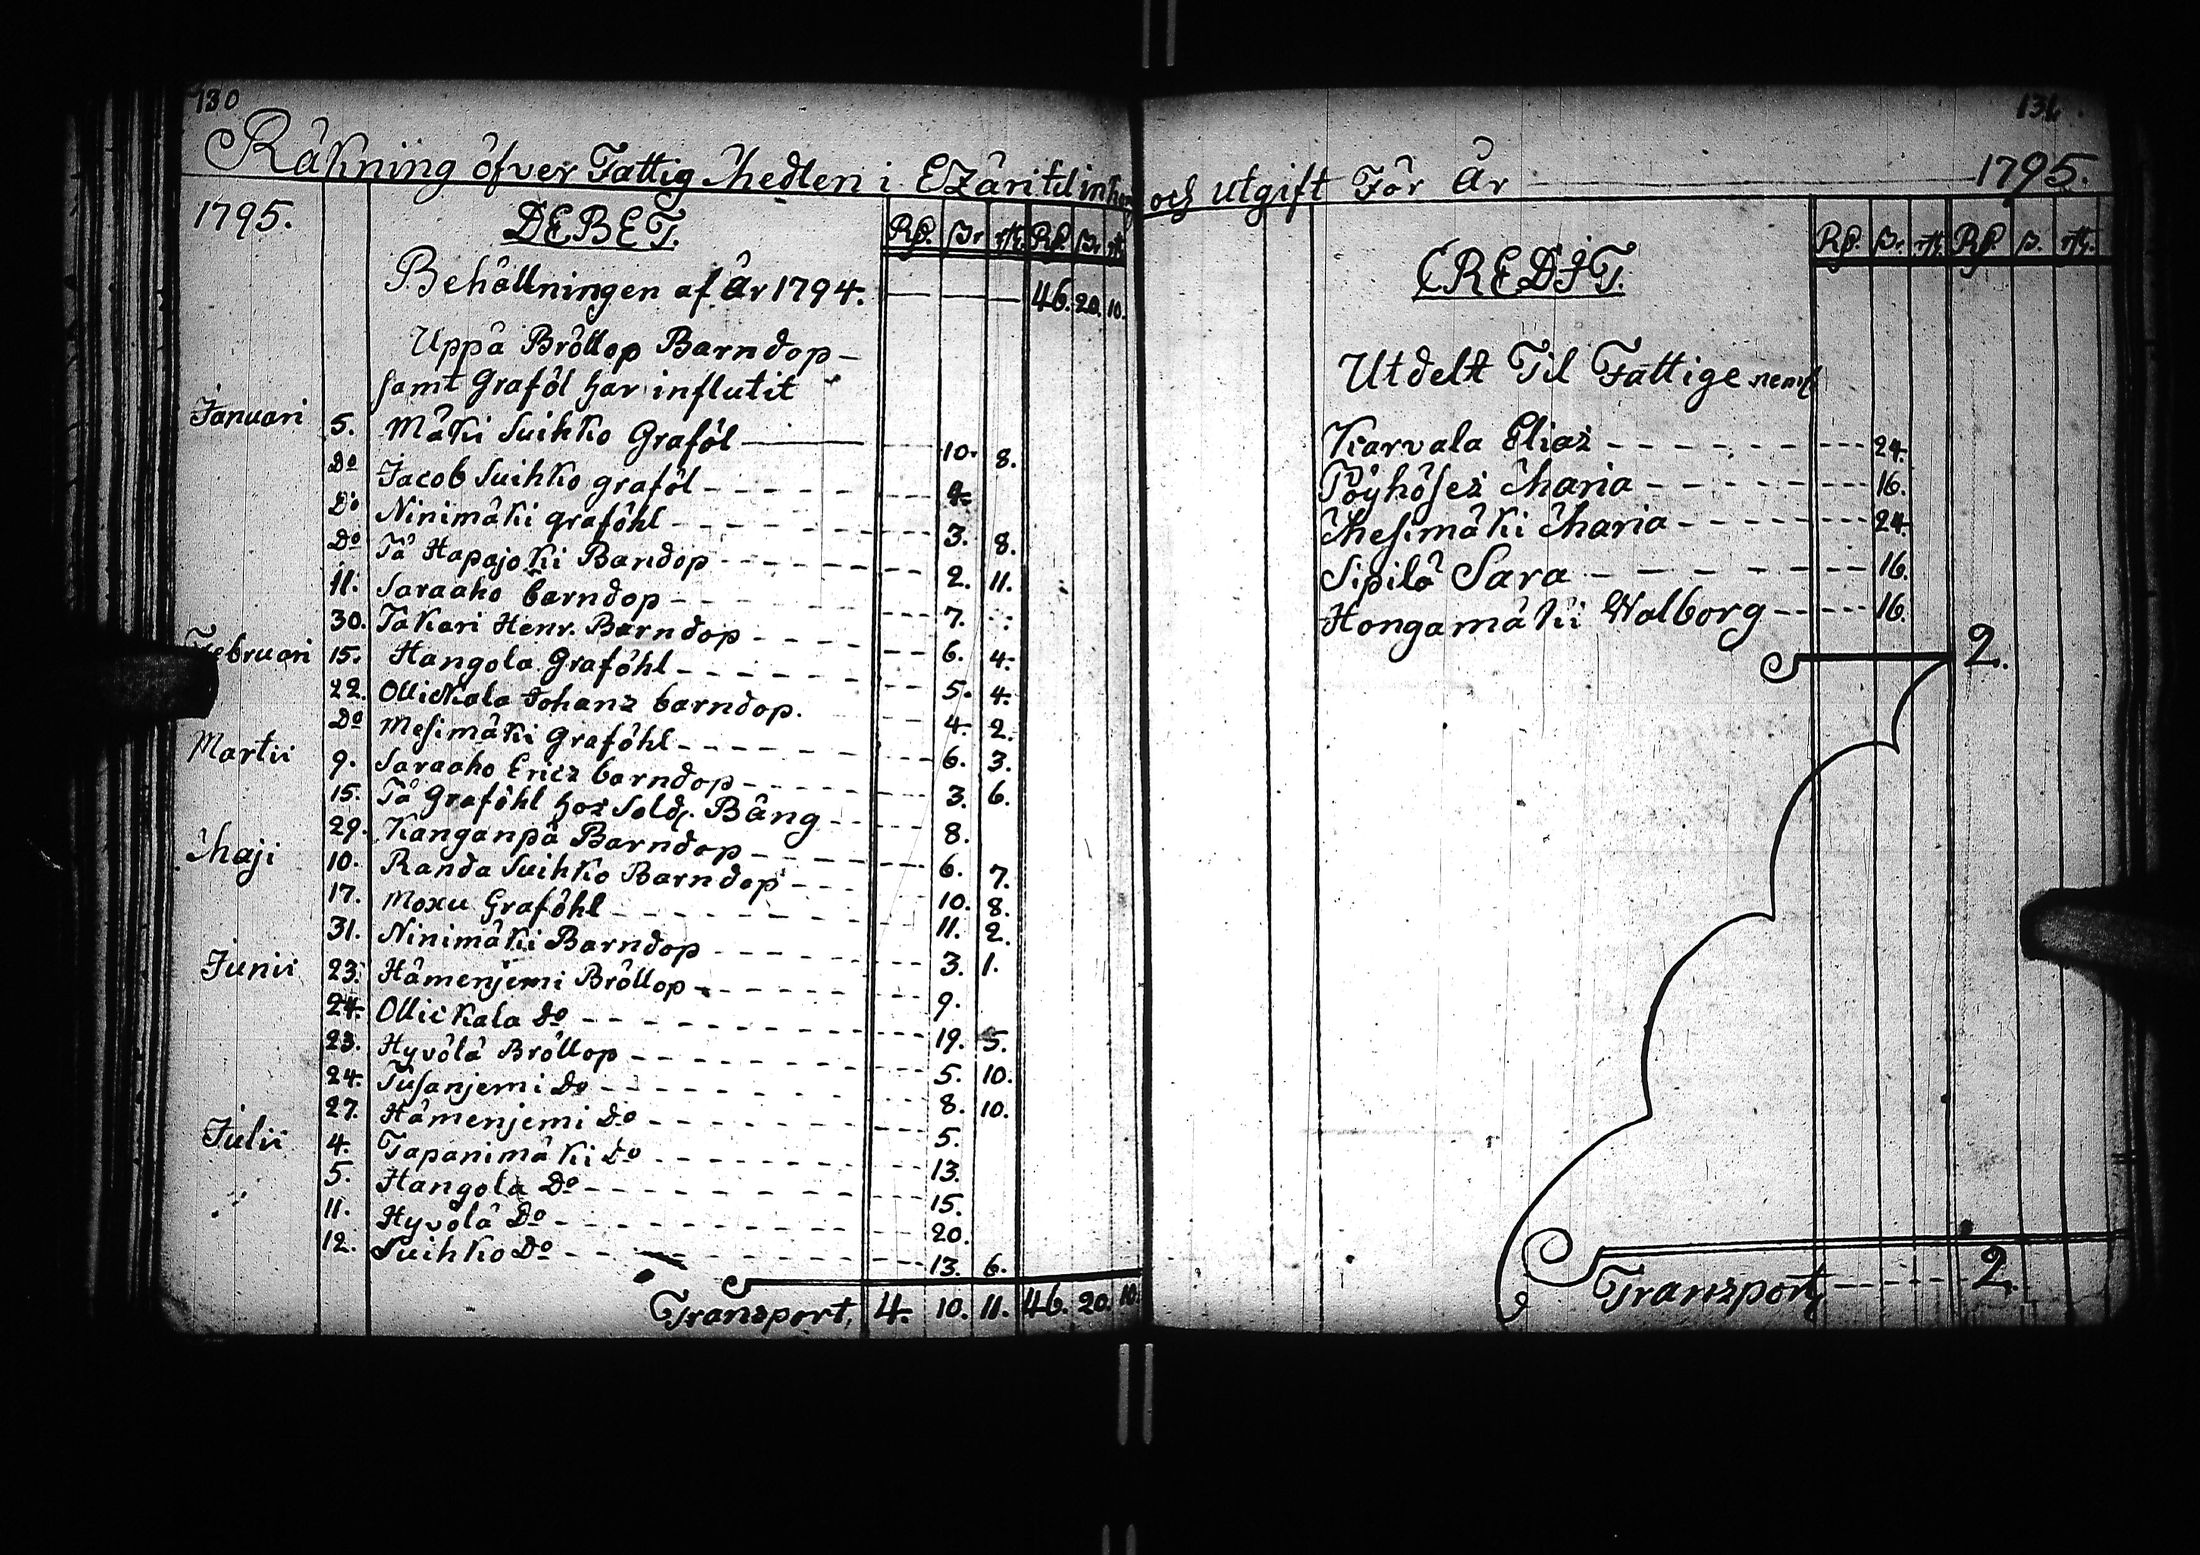 130
Räkning öfver Fattig Medlen i Ezäri til inkom
1795. DEBET. Rd. sr. rst. Rd. sr. rst.
Behållningen af År 1794. — — — 46. 20. 10.
Uppå Bröllop Barndop –
samt Graföl har influtit
Januari 5. Mäki Suihko Graföl — 10. 8.
Do Jacob Suihko graföl – – – 4.
Do Ninimäki graföhl – – – 3. 8.
Do På Hapajoki Barndop – – – 2. 11.
11. Saraaho barndop – – – 7.
30. Takari Henr. Barndop – – – 6. 4.
Februari 15. Hangola Graföhl – – – 5. 4.
22. Ollickala Johanz barndop. 4. 2.
Do Mesimäki Graföhl – – – 6. 3.
Martii 9. Saraaho Ericz barndop – – – 3. 6.
15. På Graföhl hoz Sold. Bång – – – 8.
29. Kanganpä Barndop – – – 6. 7.
Maji 10. Randa Suihko Barndop – – – 10. 8.
17. Moxu Graföhl – – – 11. 2.
31. Ninimäki Barndop – – – 3. 1.
Junii 23. Hämenjemi Bröllop – – – 9.
24. Ollickala Do – – – 19. 5.
23. Hyvölä Bröllop – – – 5. 10.
24. Tusanjemi Do – – – 8. 10.
27. Hämenjemi Do – – – 5.
Julii 4. Tapanimäki Do – – – 13.
5. Hangola Do – – – 15.
11. Hyvölä Do – – – 20.
12. Suihko Do – – – 13. 6.
Transport, 4. 10. 11. 46. 20. 10.
131
och utgift För År — 1795.
CREDIT. Rd. sr. rst. Rd. s. rst.
Utdelt Til Fattige neml
Karvala Eliaz – – – 24.
Pöyhöses Maria – – – 16.
Mesimäki Maria – – – 24.
Sipilä Sara – – – 16.
Hongamäki Walborg – – – 16.
2.
Transport – – – 2.